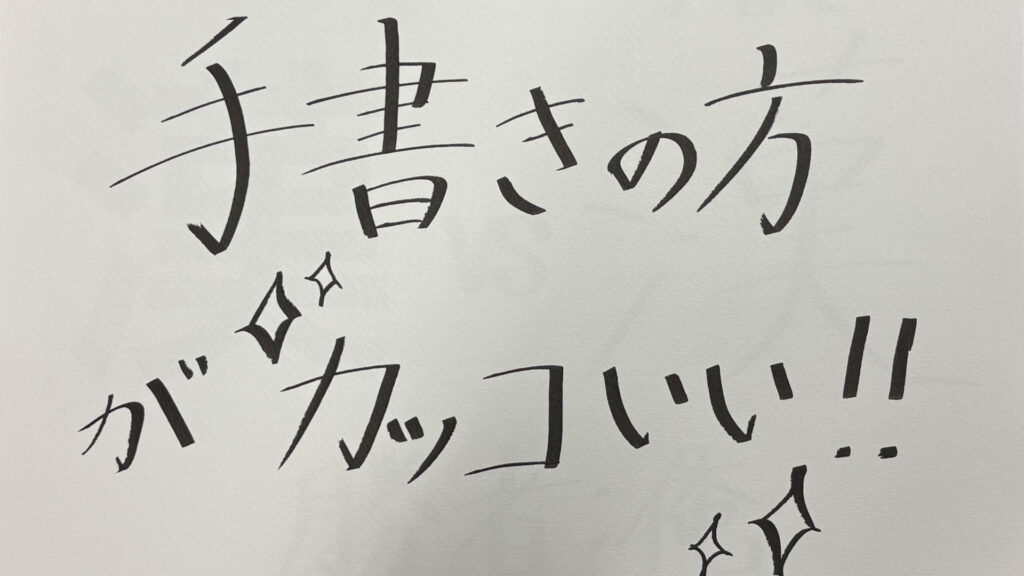 手書きの方
がカッコいい!!